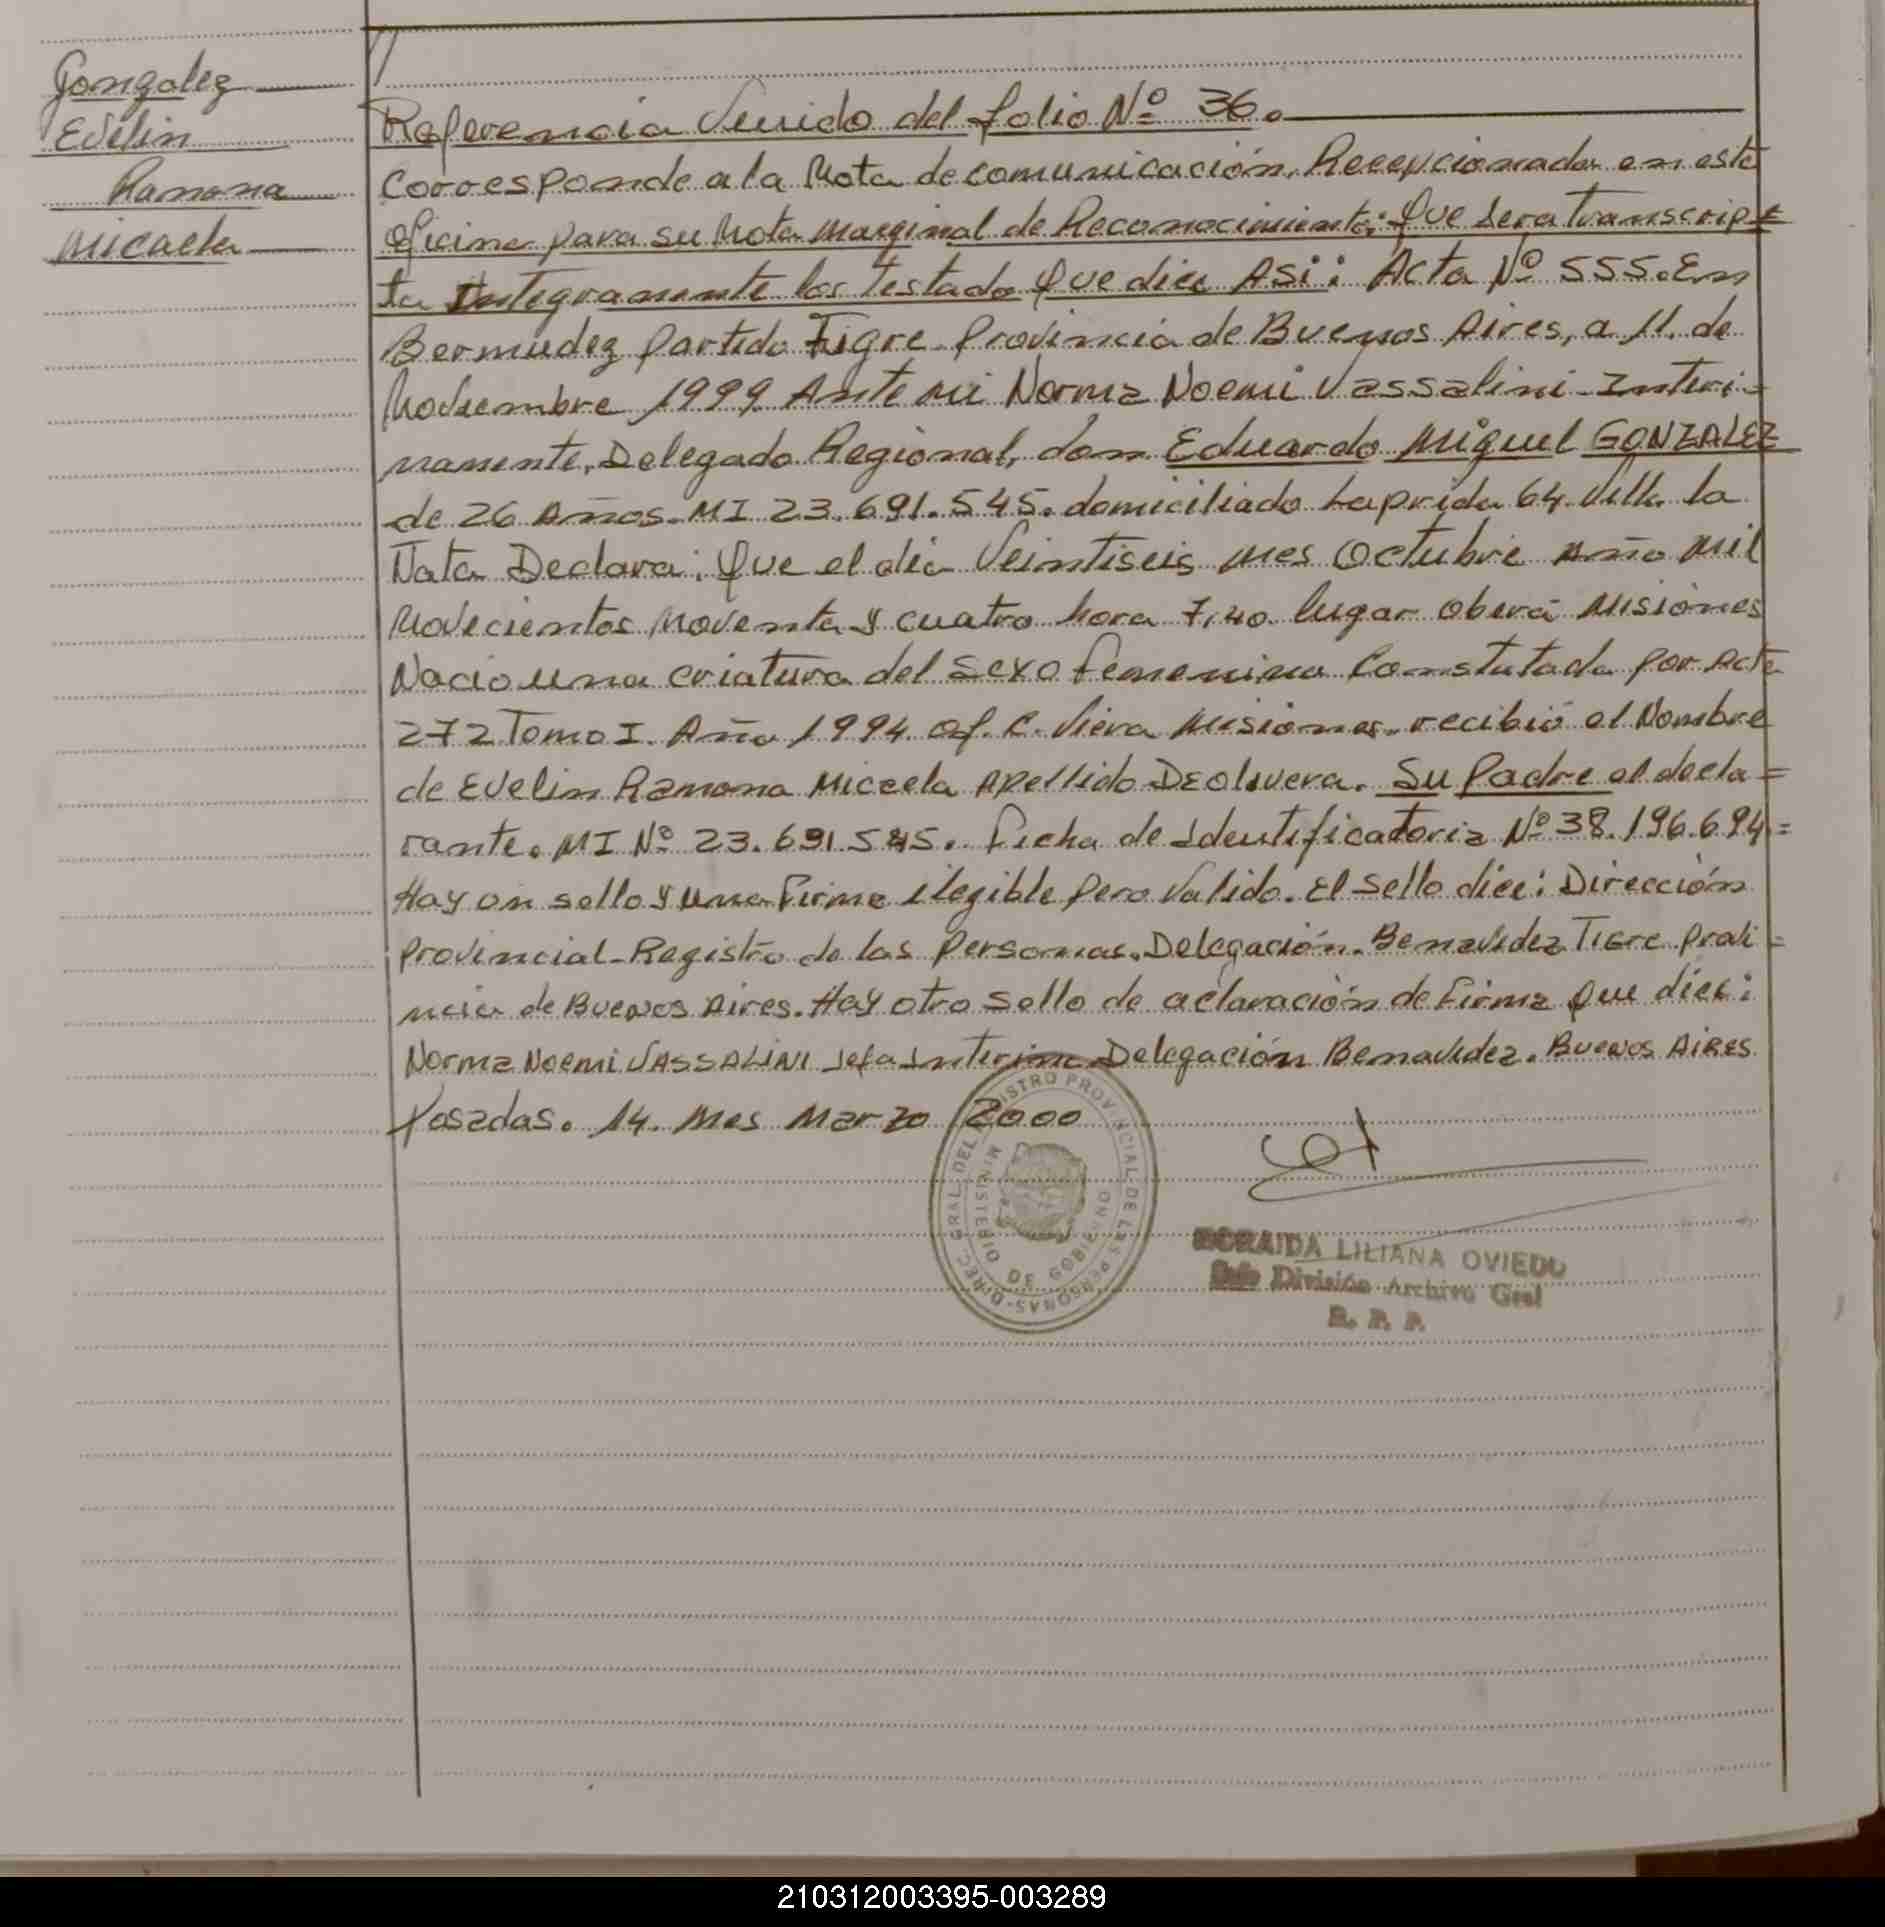 Gonzalez
Evelin
Ramona
Micaela
Referencia Venido del folio Nº 36.
Corresponde a la Nota de comunicación, Recepcionada en esta
oficina para su Nota Marginal de Reconocimiento; que sera transcrip=
ta Integramente los Testado que dice ASi: Acta Nº 555. En
Bermudez partido Tigre Provincia de Buenos Aires, a 11. de
Noviembre 1999 Ante mi Norma Noemi Vassalini - Interi=
namente, Delegado Regional, don Eduardo Miguel GONZALEZ
de 26 Años. MI 23.691.545. domiciliado Laprida 64. Villa la
Ñata Declara: Que el día Veintiseis mes Octubre Año Mil
Novecientos Noventa y cuatro hora 7,40. lugar Oberá Misiones
Nacio una criatura del sexo femenino Constatada por Acta
272 Tomo I. Año 1994 of. C. Viera Misiones. recibió el Nombre
de Evelin Ramona Micaela Apellido DEolivera. Su Padre el decla=
rante. MI Nº 23.691.545. ficha de Identificatoria Nº 38.196.694=
Hay un sello y una Firma ilegible pero Valido. El Sello dice: Dirección
Provincial - Registro de las Personas. Delegación. Benavidez Tigre Provi=
ncia de Buenos Aires. Hay otro sello de aclaración de Firma que dice:
Norma Noemi VASSALINI Jefa Interina Delegación Benavidez. Buenos AiRES
Posadas. 14. mes Marzo 2000
DIREC. GRAL. DEL REGISTRO PROVINCIAL DE LAS PERSONAS
MINISTERIO DE GOBIERNO
ZORAIDA LILIANA OVIEDO
Jefe División Archivo Gral
R. P. P.
210312003395-003289